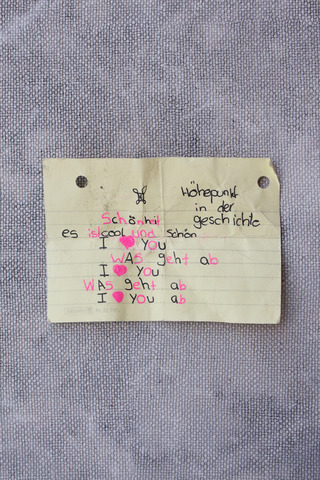 Höhepunkt
in der
geschichte
Schönheit
es ist cool und schön
I ♥ YOU
WAS geht ab
I ♥ you
WAS geht ab
I ♥ YOU ab